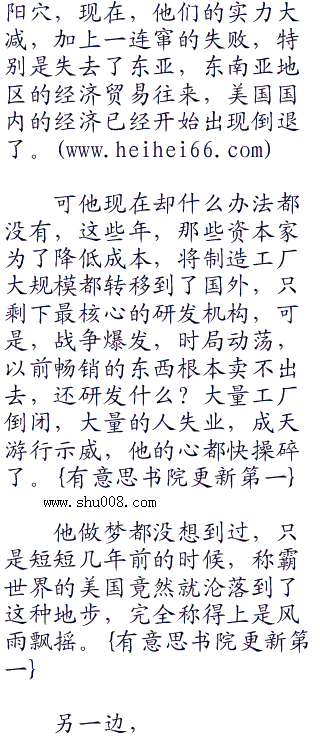 阳穴，现在，他们的实力大
减，加上一连窜的失败，特
别是失去了东亚，东南亚地
区的经济贸易往来，美国国
内的经济已经开始出现倒退
了。(www.heihei66.com)
可他现在却什么办法都
没有，这些年，那些资本家
为了降低成本，将制造工厂
大规模都转移到了国外，只
剩下最核心的研发机构，可
是，战争爆发，时局动荡，
以前畅销的东西根本卖不出
去，还研发什么？大量工厂
倒闭，大量的人失业，成天
游行示威，他的心都快操碎
了。{有意思书院更新第一}
www.shu008.com
他做梦都没想到过，只
是短短几年前的时候，称霸
世界的美国竟然就沦落到了
这种地步，完全称得上是风
雨飘摇。{有意思书院更新第
一}
另一边，